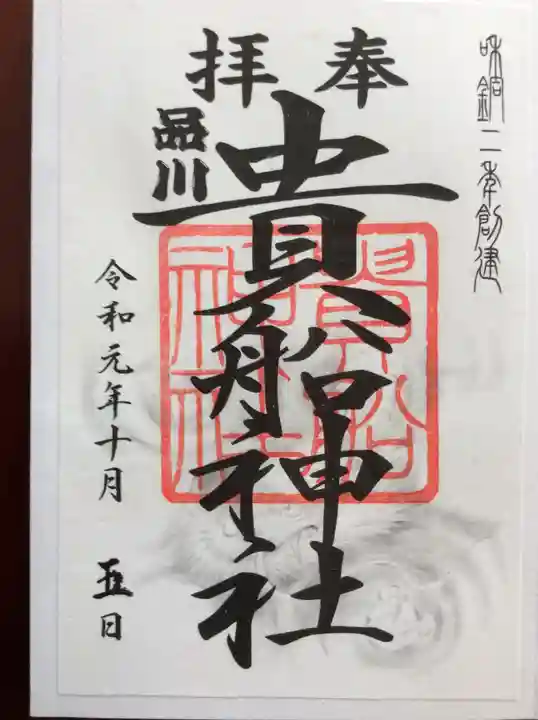 味銅二季創建
奉拝
品川
貴船神社
貴船神社
令和元年十月 五日